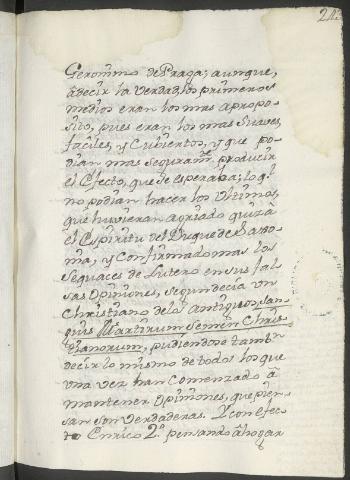 Geronimo de Praga; aunque,
a decir la verdad, los primeros
medios eran los mas apropo-
sito, pues eran los mas suaves,
faciles, y Cubiertos, y que po-
dian mas seguram.te producir
el Efecto, que se esperaba; lo q.e
no podian hacer los Ultimos,
que huvieran agriado quizá
el Espiritu del Duque de Saxo-
nia, y Confirmado mas los
Sequaces de Lutero en sus fal-
sas Opiniones, segun decia un
Christiano de los Antiguos, San-
guis Martirum Semen Chris-
tianorum, pudiendose tamb.n
decir lo mismo de todos los que
una vez han Comenzado â
mantener Opiniones, que pien-
san son Verdaderas. Y con efec-
to Enrico 2.o pensando ahogar